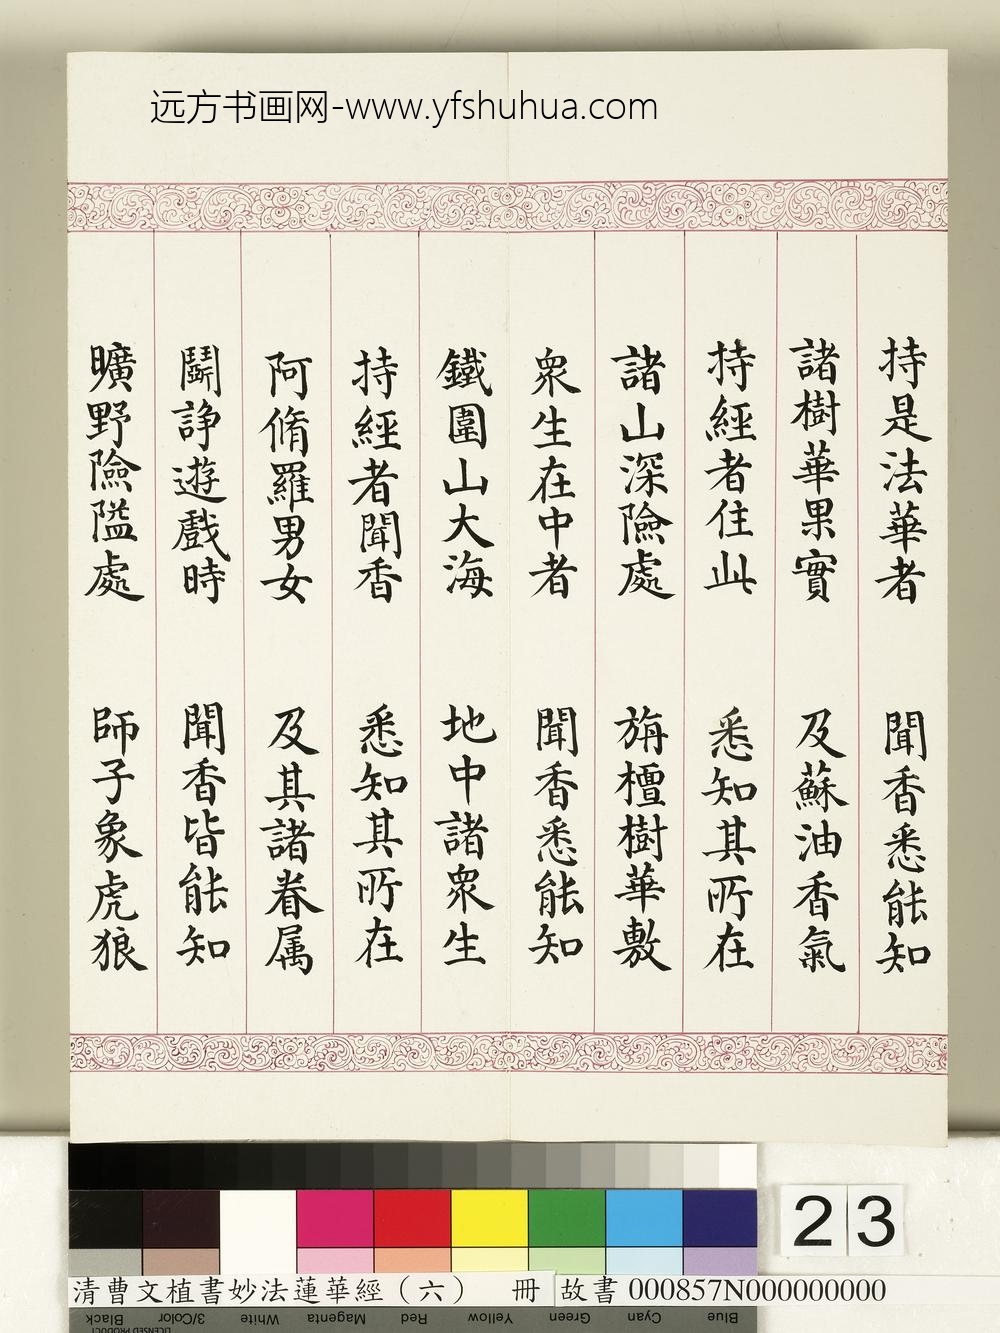 远方书画网-www.yfshuhua.com
持是法華者　聞香悉能知
諸樹華果實　及蘇油香氣
持經者住此　悉知其所在
諸山深險處　旃檀樹華敷
眾生在中者　聞香悉能知
鐵圍山大海　地中諸眾生
持經者聞香　悉知其所在
阿脩羅男女　及其諸眷属
鬭諍遊戲時　聞香皆能知
曠野險隘處　師子象虎狼
23
清曹文植書妙法蓮華經（六）　冊　故書 000857N000000000
Black 3/Color White Magenta Red Yellow Green Cyan Blue
LICENSED PRODUCT